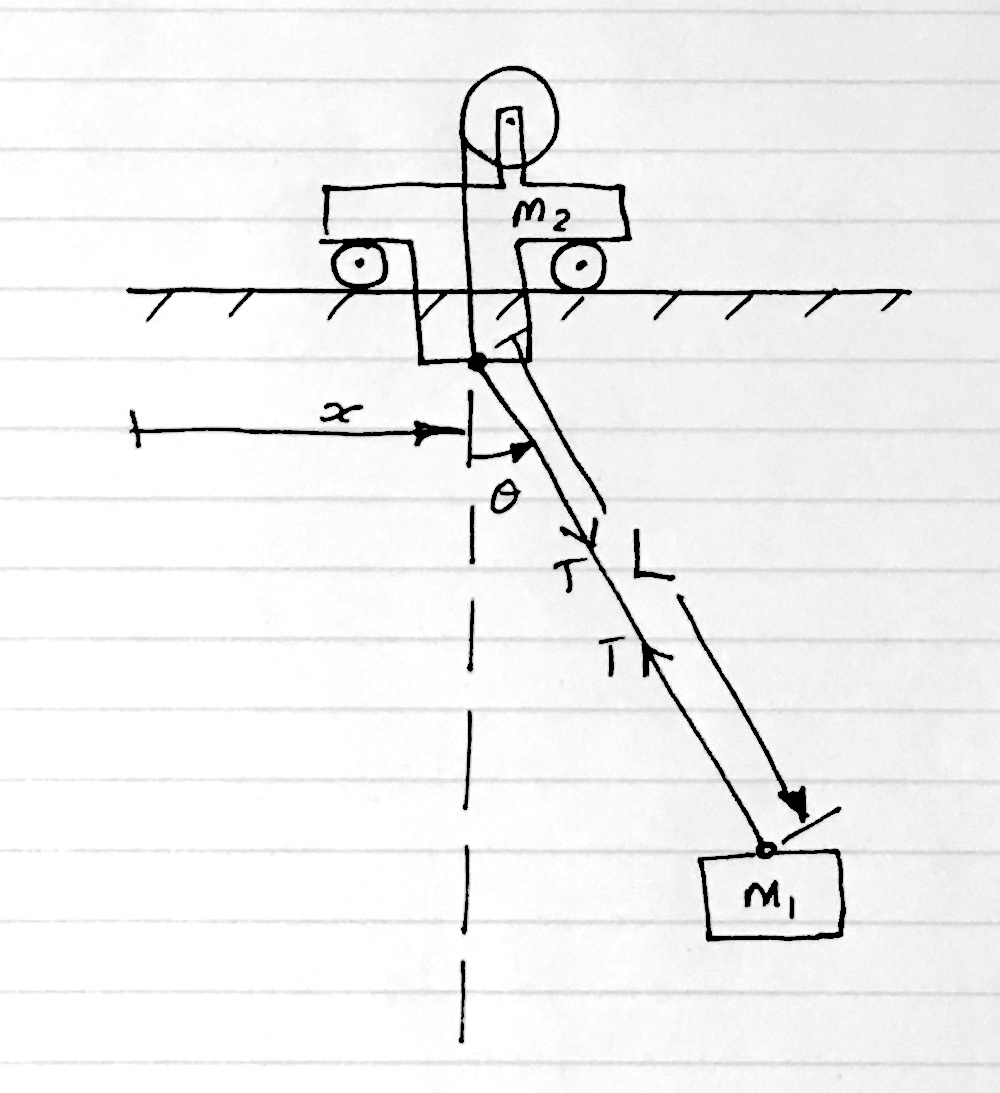 m₂
x
θ
T
L
T
m₁